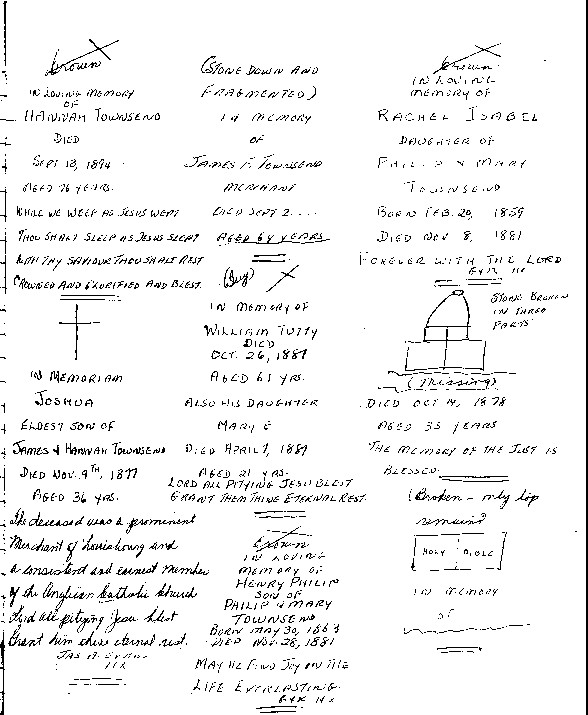 Crown
IN LOVING MEMORY
OF
HANNAH TOWNSEND
DIED
SEPT 13, 1894.
AGED 76 YEARS.
WHILE WE WEEP AS JESUS WEPT
THOU SHALT SLEEP AS JESUS SLEPT
WITH THY SAVIOUR THOU SHALT REST
CROWNED AND GLORIFIED AND BLEST.
IN MEMORIAM
JOSHUA
ELDEST SON OF
JAMES & HANNAH TOWNSEND
DIED NOV. 9TH, 1877
AGED 36 YRS.
The deceased was a prominent
Merchant of Louisbourg and
a consistent and earnest member
of the Anglican Catholic Church
Lord all pitying Jesu blest
Grant him thine eternal rest.
(STONE DOWN AND
FRAGMENTED)
IN MEMORY
OF
JAMES F. TOWNSEND
MERCHANT
DIED SEPT 2....
AGED 64 YEARS
IN MEMORY OF
WILLIAM TUTTY
DIED
OCT. 26, 1887
AGED 61 YRS.
ALSO HIS DAUGHTER
MARY E
DIED APRIL 7, 1889
AGED 21 YRS.
LORD ALL PITYING JESU BLEST
GRANT THEM THINE ETERNAL REST.
Crown
IN LOVING
MEMORY OF
HENRY PHILIP
SON OF
PHILIP & MARY
TOWNSEND
BORN MAY 30, 1863
DIED NOV. 28, 1881
MAY HE FIND JOY ON THE
LIFE EVERLASTING.
Crown
IN LOVING
MEMORY OF
RACHEL ISABEL
DAUGHTER OF
PHILIP & MARY
TOWNSEND
BORN FEB. 20, 1859
DIED NOV 8, 1881
FOREVER WITH THE LORD
STONE BROKEN
IN THREE
PARTS
(Missing)
DIED OCT 14, 1878
AGED 35 YEARS
THE MEMORY OF THE JUST IS
BLESSED.
(Broken - only top
remains
HOLY BIBLE
IN MEMORY
OF